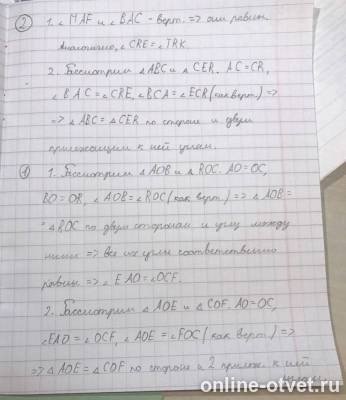 ② 1. ∠MAF и ∠BAC - верт. => они равны.
Аналогично, ∠CRE = ∠TRK.
2. Рассмотрим △ABC и △CER. AC=CR,
∠BAC = ∠CRE, ∠BCA = ∠ECR (как верт.) =>
=> △ABC = △CER по стороне и двум
прилежащим к ней углам.
① 1. Рассмотрим △AOB и △ROC. AO=OC,
BO=OR, ∠AOB = ∠ROC (как верт.) => △AOB =
= △ROC по двум сторонам и углу между
ними => все их углы соответственно
равны => ∠EAO = ∠OCF.
2. Рассмотрим △AOE и △COF. AO=OC,
∠EAO = ∠OCF, ∠AOE = ∠FOC (как верт.) =>
=> △AOE = △COF по стороне и 2 прилеж. к ней
углам.
online-otvet.ru